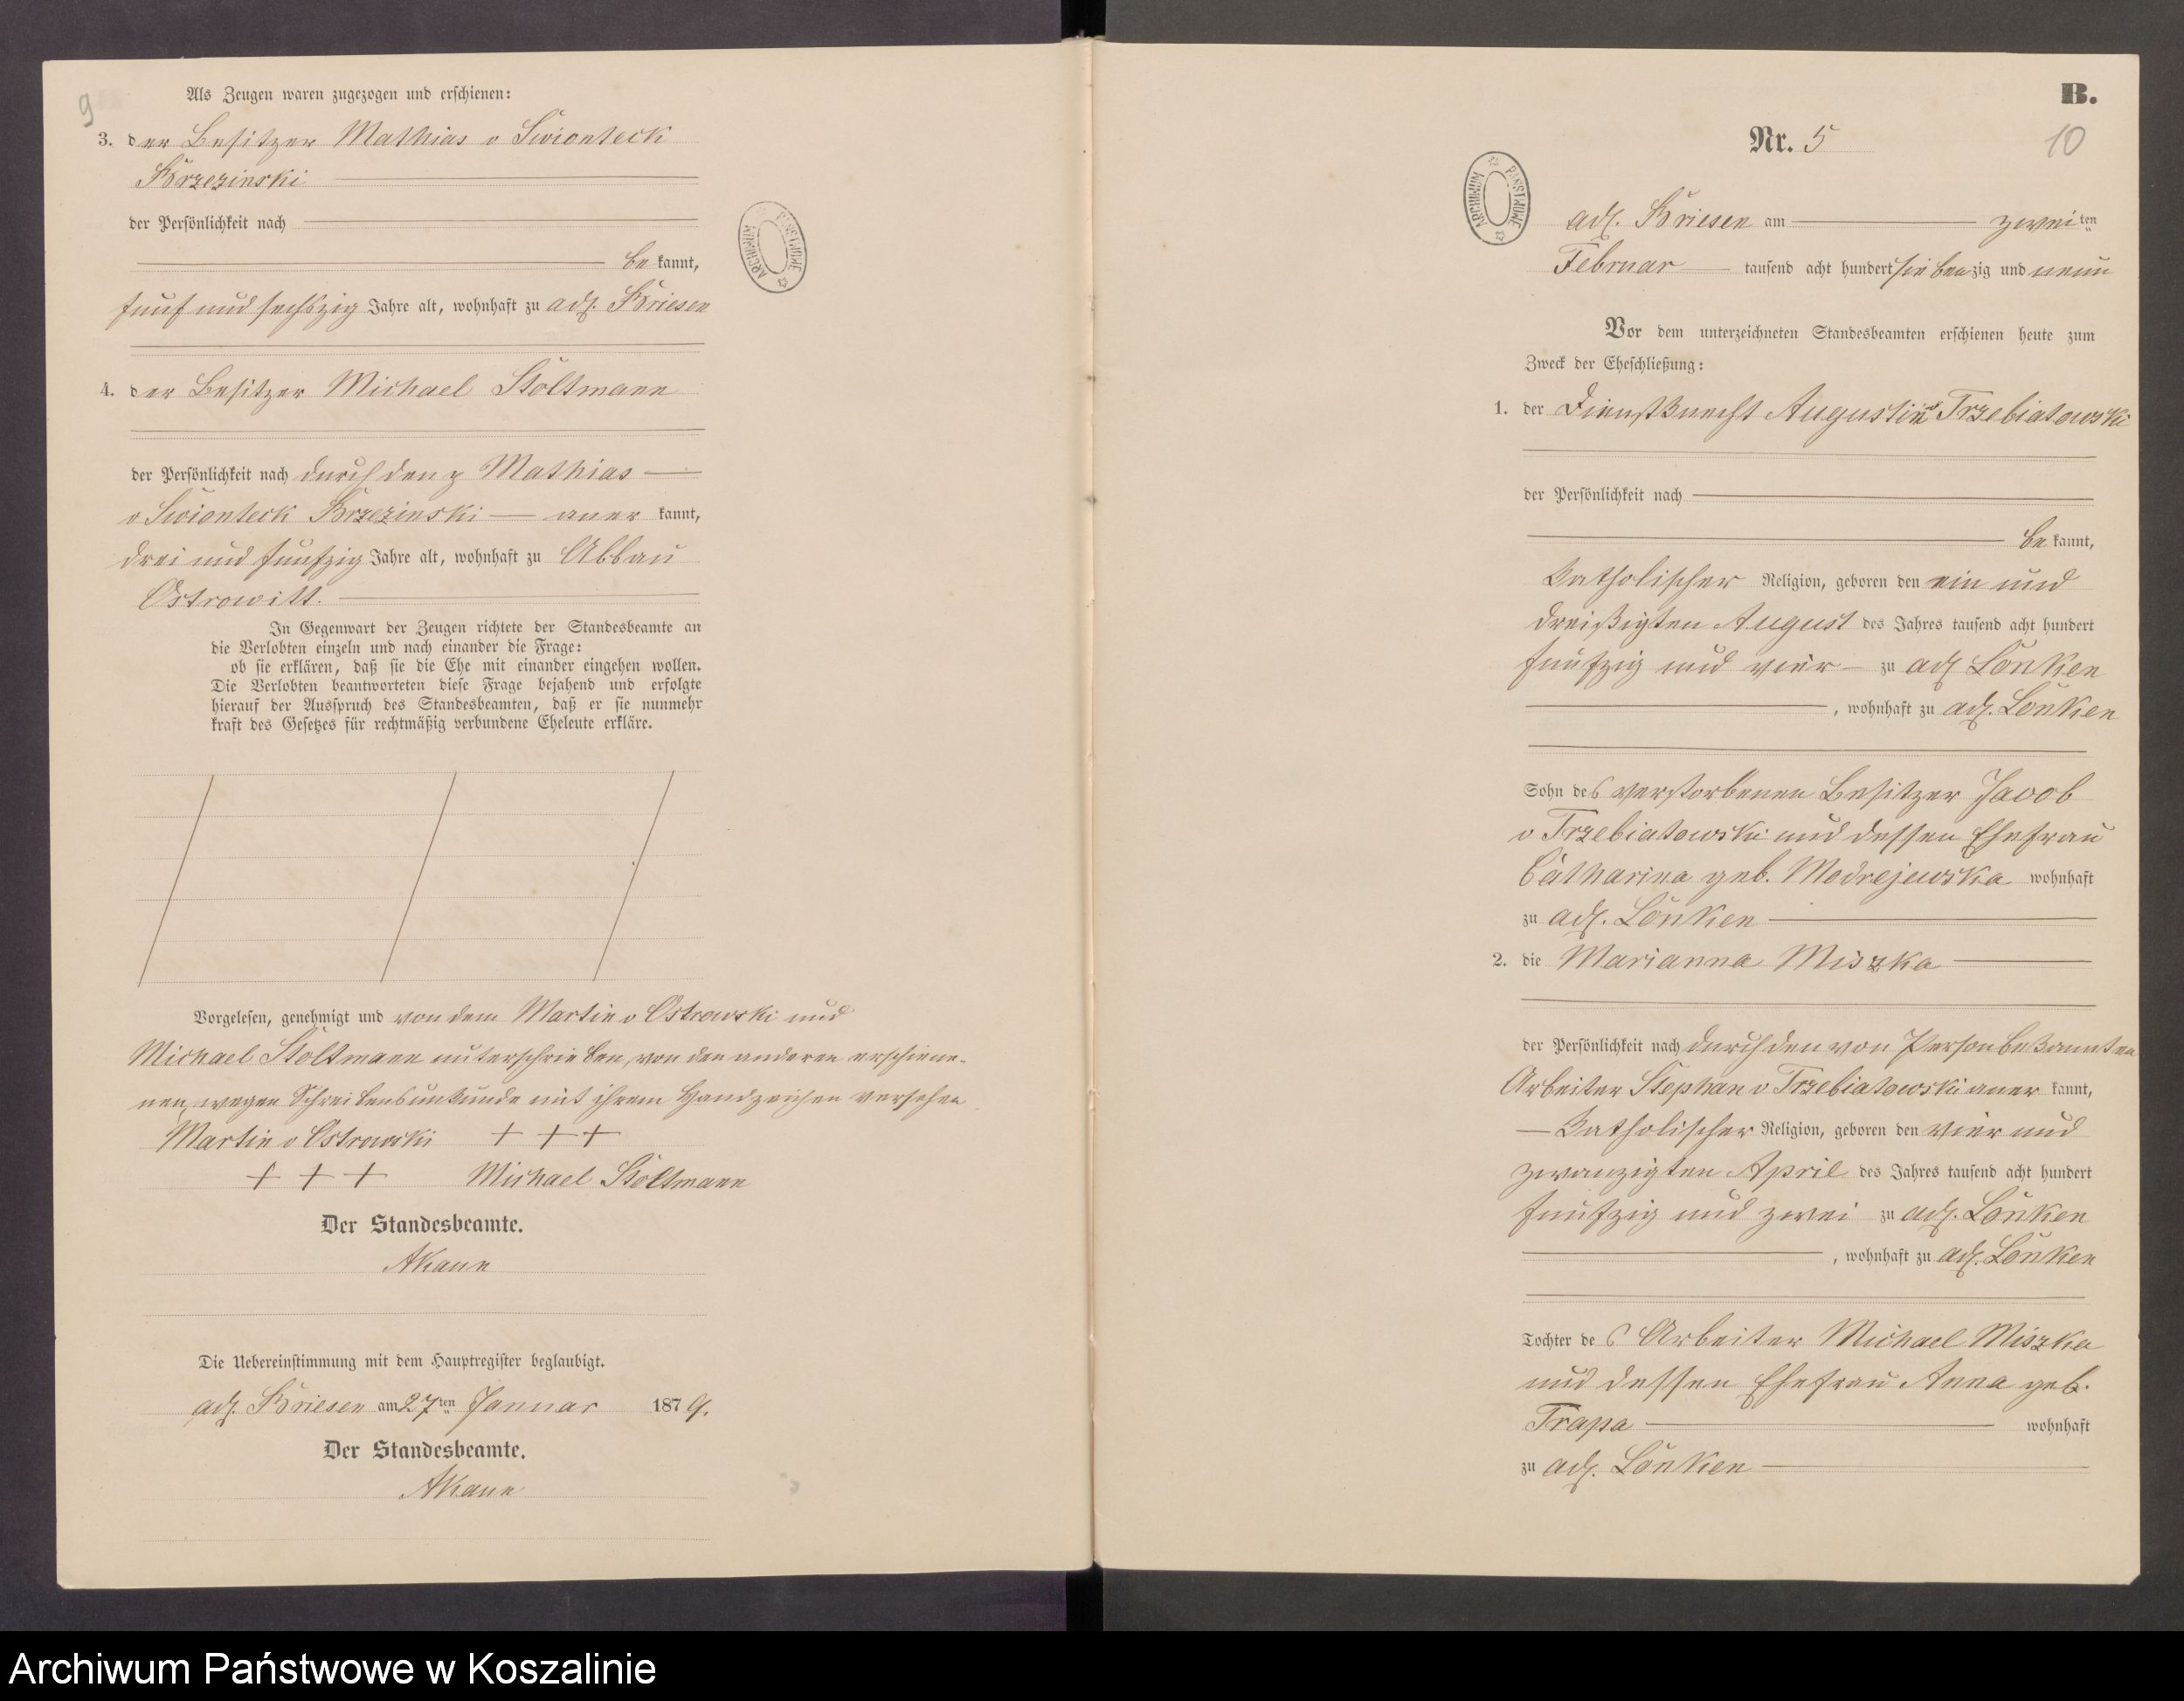 9
Als Zeugen waren zugezogen und erschienen:
3. der Besitzer Mathias v Swionteck
Brzezinski
der Persönlichkeit nach
be kannt,
fünf und sechszig Jahre alt, wohnhaft zu adl. Briesen
4. der Besitzer Michael Stoltmann
der Persönlichkeit nach durch den p Mathias
v Swionteck Brzezinski aner kannt,
drei und fünfzig Jahre alt, wohnhaft zu Abbau
Ostrowitt.
In Gegenwart der Zeugen richtete der Standesbeamte an
die Verlobten einzeln und nach einander die Frage:
ob sie erklären, daß sie die Ehe mit einander eingehen wollen.
Die Verlobten beantworteten diese Frage bejahend und erfolgte
hierauf der Ausspruch des Standesbeamten, daß er sie nunmehr
kraft des Gesetzes für rechtmäßig verbundene Eheleute erkläre.
Vorgelesen, genehmigt und von dem Martin v Ostrowski und
Michael Stoltmann unterschrieben, von den anderen erschiene-
nen, wegen Schreibensunkunde mit ihrem Handzeichen versehen
Martin v Ostrowski + + +
+ + + Michael Stoltmann
Der Standesbeamte.
Die Uebereinstimmung mit dem Hauptregister beglaubigt.
adl. Briesen am 27ten Januar 1879.
Der Standesbeamte.
ARCHIWUM PAŃSTWOWE
B.
Nr. 5
10
ARCHIWUM PAŃSTWOWE
adl. Briesen am zweiten
Februar tausend acht hundert siebenzig und neun
Vor dem unterzeichneten Standesbeamten erschienen heute zum
Zweck der Eheschließung:
1. der Dienstknecht Augustin v Trzebiatowski
der Persönlichkeit nach
be kannt,
katholischer Religion, geboren den ein und
dreißigten August des Jahres tausend acht hundert
fünfzig und vier zu adl Lonken
, wohnhaft zu adl. Lonken
Sohn des verstorbenen Besitzer Jacob
v Trzebiatowski und dessen Ehefrau
Catharina geb. Modrejewska wohnhaft
zu adl. Lonken
2. die Marianna Miszka
der Persönlichkeit nach durch den von Person bekannten
Arbeiter Stephan v Trzebiatowski aner kannt,
katholischer Religion, geboren den vier und
zwanzigten April des Jahres tausend acht hundert
fünfzig und zwei zu adl. Lonken
, wohnhaft zu adl. Lonken
Tochter des Arbeiter Michael Miszka
und dessen Ehefrau Anna geb.
Trapa wohnhaft
zu adl. Lonken
Archiwum Państwowe w Koszalinie